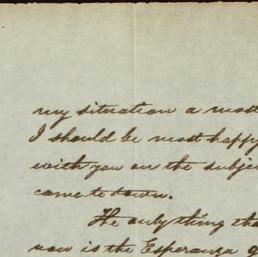 my situation a most
I should be most happy
with you on the subje
come to town.
The only thing tha
now is the Esperanza g